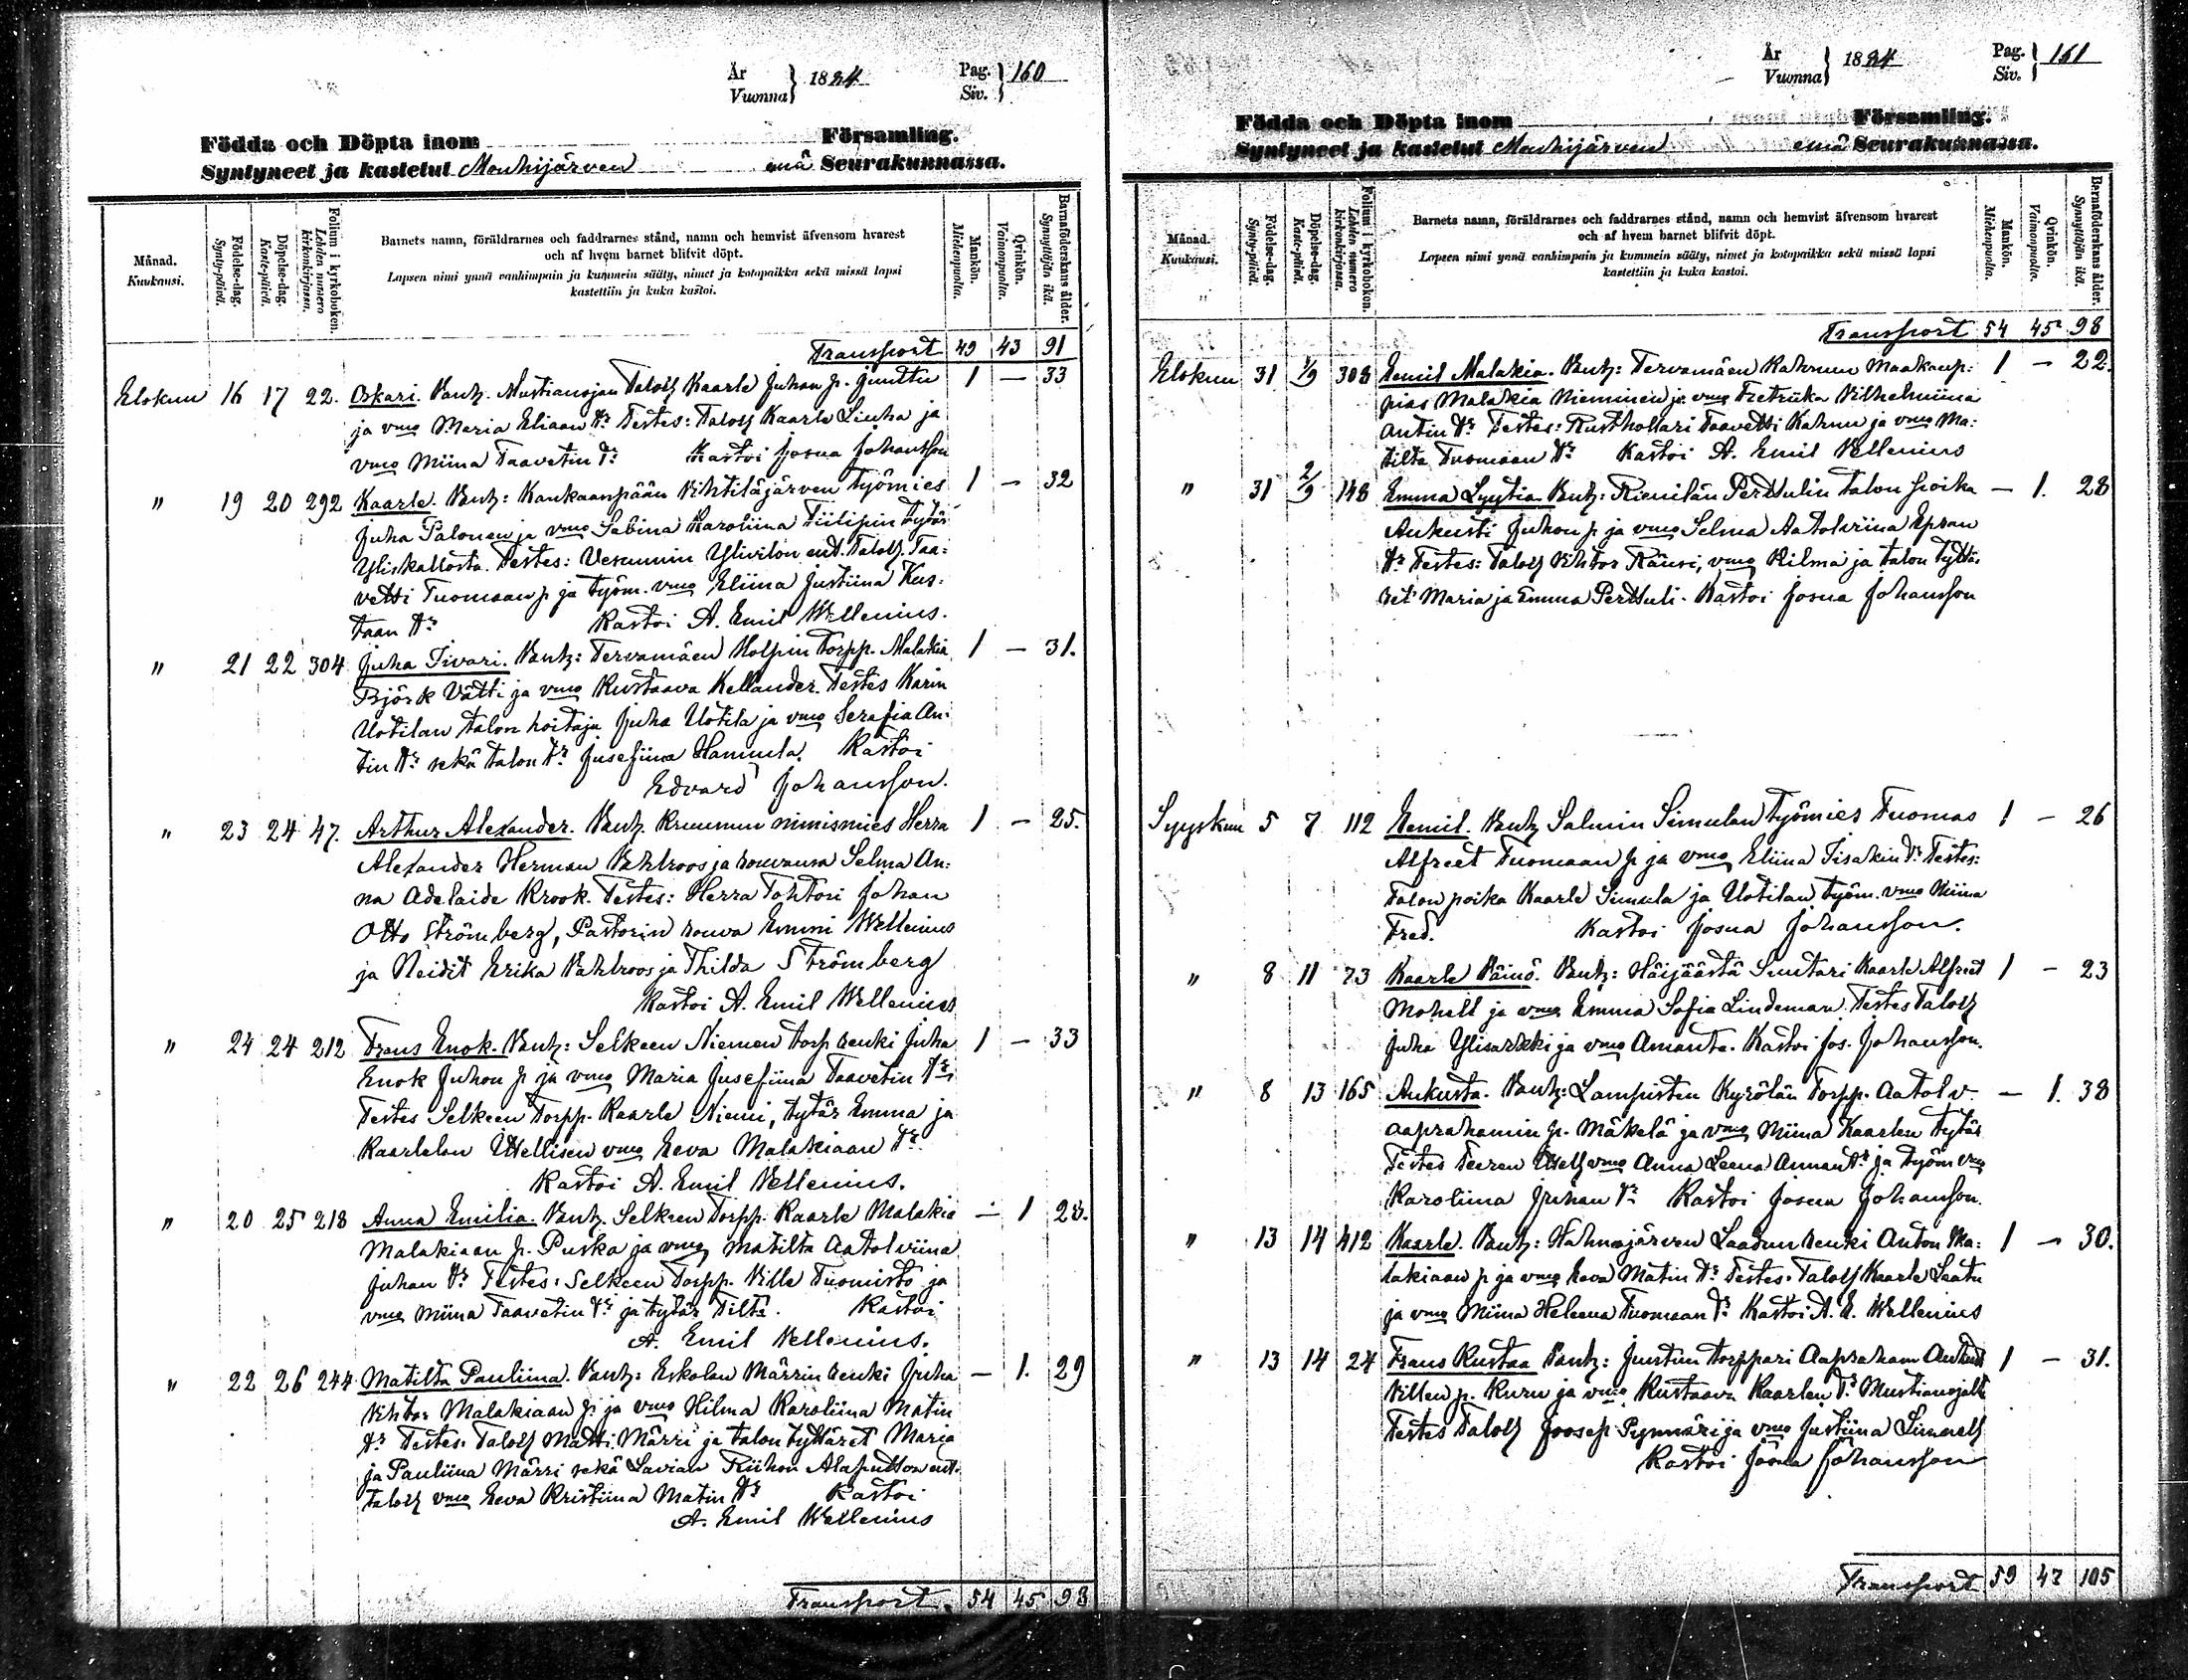 År
Vuonna } 1884
Pag.
Siv. } 160
Födda och Döpta inom Församling.
Syntyneet ja kastetut Mouhijärven emä Seurakunnassa.
Månad.
Kuukausi.
Födelse-dag.
Synty-päivä.
Döpelse-dag.
Kaste-päivä.
Folium i kyrkoboken.
Lehden numero kirkonkirjassa.
Barnets namn, föräldrarnes och faddrarnes stånd, namn och hemvist äfvensom hvarest
och af hvem barnet blifvit döpt.
Lapsen nimi ynnä vanhimpain ja kummein sääty, nimet ja kotopaikka sekä missä lapsi
kastettiin ja kuka kastoi.
Mankön.
Miehenpuolta.
Qvinkön.
Vaimonpuolta.
Barnaföderskans ålder.
Synnyttäjän ikä.
Transport 49 43 91
Elokuu 16 17 22. Oskari. Vanh. Mustianojan Talolj Kaarle Juhan p. Junttu 1 — 33
ja vmo Maria Eliaan tr Testes: Talolj Kaarle Liuha ja
vmo Miina Taavetin tr Kastoi Josua Johansson
" 19 20 292 Kaarle. Vanh: Kankaanpään Vihtiläjärven työmies 1 — 32
Juha Palonen ja vmo Sabina Karoliina Tiilipin tytär
Yliskallosta. Testes: Vesunnin Ylivilon ent. Talolj. Taa=
vetti Tuomaan p ja työm. vmo Eliina Justiina Kus=
taan tr Kastoi A. Emil Wellenius.
" 21 22 304 Juha Iivari. Vanh: Tervamäen Holpin Torpp. Malakia 1 — 31.
Björk Vätti ja vmo Kustaava Kellander. Testes Karin
Uotilan talon hoitaja Juha Uotila ja vmo Serafia An=
tin tr sekä talon tr Jusefiina Hannula. Kastoi
Edvard Johansson.
" 23 24 47. Arthur Alexander. Vanh. Kruunun nimismies Herra 1 — 25.
Alexander Herman Vahlroos ja rouvansa Selma An=
na Adelaide Krook. Testes: Herra Tohtori Johan
Otto Strömberg, Pastorin rouva Emmi Wellenius
ja Neidit Erika Vahlroos ja Thilda Strömberg
Kastoi A. Emil Wellenius
" 24 24 212 Frans Enok. Vanh: Selkeen Niemen torp renki Juha 1 — 33
Enok Juhan p ja vmo Maria Jusefiina Taavetin tr
Testes Selkeen Torpp. Kaarle Niemi, tytär Emma ja
Kaarlelan Itsellisen vmo Eeva Malakiaan tr
Kastoi A. Emil Wellenius.
" 20 25 218 Anna Emilia. Vanh. Selkeen Torpp. Kaarle Malakia — 1 28.
Malakiaan p. Puska ja vmo Matilta Aatolviina
Juhan tr Testes: Selkeen Torpp. Ville Tuomisto ja
vmo Miina Taavetin tr ja tytär Tilta. Kastoi
A. Emil Wellenius.
" 22 26 244 Matilta Pauliina. Vanh: Eskolan Märrin renki Juha — 1. 29
Vihtor Malakiaan p. ja vmo Hilma Karoliina Matin
tr Testes. Talolj Matti Märri ja talon tyttäret Maria
ja Pauliina Märri sekä Lavian Riihon Alaputton ent.
talolj vmo Eeva Kristiina Matin tr Kastoi
A. Emil Wellenius
Transport. 54 45 98
År
Vuonna } 1884
Pag.
Siv. } 161
Födda och Döpta inom Församling.
Syntyneet ja kastetut Mouhijärven emä Seurakunnassa.
Månad.
Kuukausi.
Födelse-dag.
Synty-päivä.
Döpelse-dag.
Kaste-päivä.
Folium i kyrkoboken.
Lehden numero kirkonkirjassa.
Barnets namn, föräldrarnes och faddrarnes stånd, namn och hemvist äfvensom hvarest
och af hvem barnet blifvit döpt.
Lapsen nimi ynnä vanhimpain ja kummein sääty, nimet ja kotopaikka sekä missä lapsi
kastettiin ja kuka kastoi.
Mankön.
Miehenpuolta.
Qvinkön.
Vaimonpuolta.
Barnaföderskans ålder.
Synnyttäjän ikä.
Transport 54 45 98
Elokuu 31 1/9 308 Eemil Malakia. Vanh: Tervamäen Kahrun Maakaup= 1 — 22.
pias Malakia Nieminen ja vmo Fretriika Vilhelmiina
Antin tr Testes: Rusthollari Taavetti Kahruu ja vmo Ma=
tilta Tuomaan tr Kastoi A. Emil Wellenius
" 31 2/9 148 Emma Lyytia. Vanh: Rienilän Perttulin talon poika — 1. 28
Aukusti Juhan p ja vmo Selma Aatolviina Epran
tr Testes: Talolj Vihtor Räuri, vmo Hilma ja talon tyttä=
ret Maria ja Emma Perttuli. Kastoi Josua Johansson
Syyskuu 5 7 112 Eemil. Vanh Salmin Simulan työmies Tuomas 1 — 26
Alfreet Tuomaan p ja vmo Eliina Iisakin tr Testes:
Talon poika Kaarle Simula ja Uotilan työm. vmo Miina
Fred. Kastoi Josua Johansson.
" 8 11 73 Kaarle Väinö. Vanh: Häijäästä Suutari Kaarle Alfred 1 — 23
Mohell ja vmo Emma Sofia Lindeman. Testes Talolj
Juha Ylisarkki ja vmo Amanta. Kastoi Jos. Johansson.
" 8 13 165 Aukusta. Vanh: Lampistin Kyrölän Torpp. Aatolv. — 1. 38
Aaprahamin p. Mäkelä ja vmo Miina Kaarlen tytär
Testes Teeren Itselj vmo Anna Leena Annan tr ja työm vmo
Karoliina Juhan tr Kastoi Josua Johansson.
" 13 14 412 Kaarle. Vanh: Hahmajärven Laadun renki Anton Ma= 1 — 30.
lakiaan p ja vmo Eeva Matin tr Testes. Talolj Kaarle Laatu
ja vmo Miina Heleena Tuomaan tr Kastoi A. E. Wellenius
" 13 14 24 Frans Kustaa Vanh: Juntun torppari Aapraham Anton 1 — 31.
Villen p. Kuru ja vmo Kustaava Kaarlen tr Mustianojalta
Testes Talolj Joosep Pynnäri ja vmo Justiina
Kastoi Josua Johansson
Transport 59 47 105